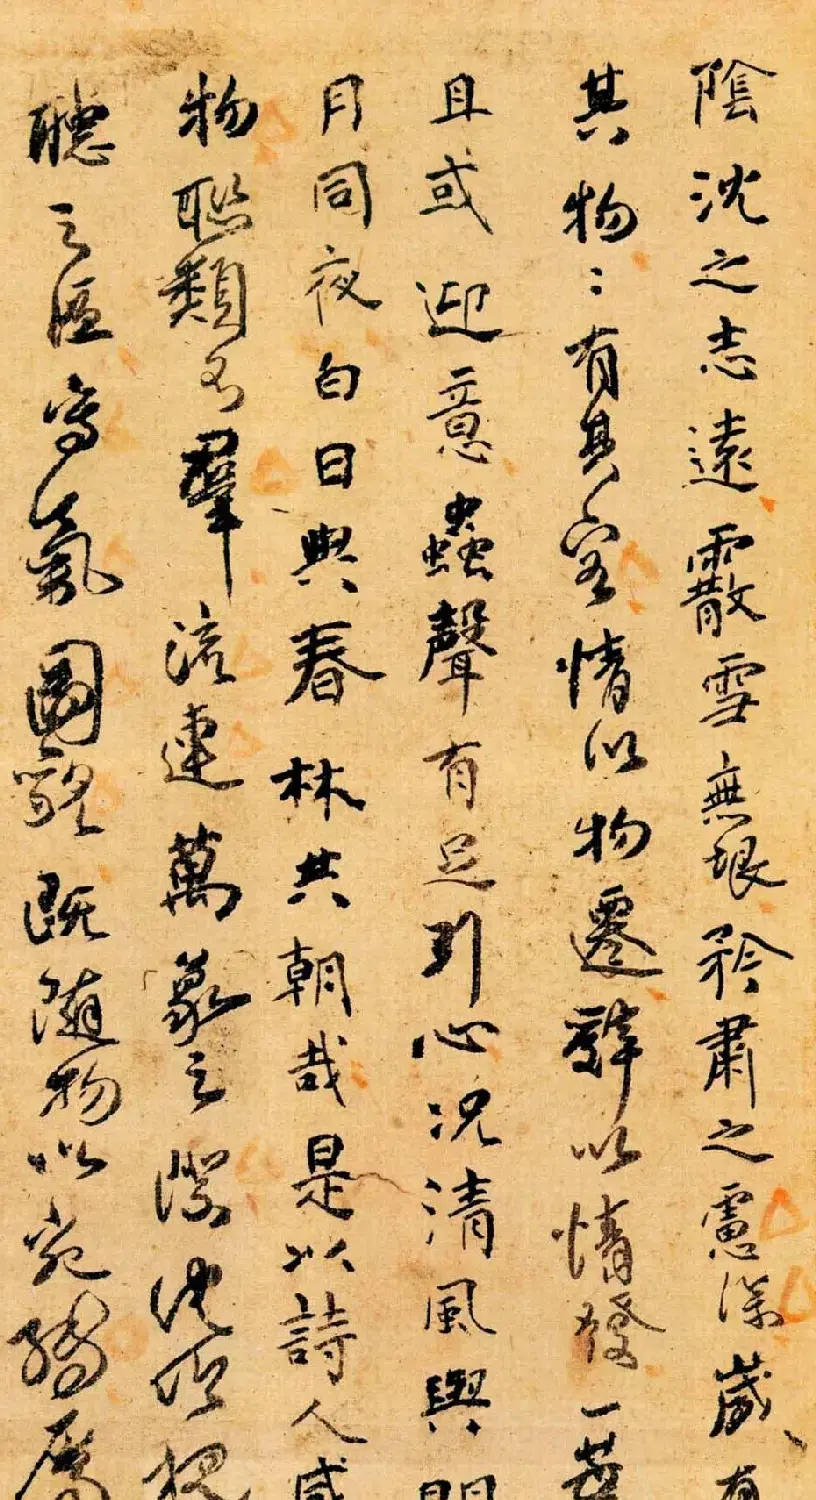 陰沈之志遠霰雪無垠矜肅之慮深歲有
其物〻有其容情以物遷辭以情發一葉
且或迎意蟲聲有足引心況清風與明
月同夜白日與春林共朝哉是以詩人感
物聯類不羣流連萬象之際沈吟視
聽之區寫氣圖貌既隨物以宛轉屬